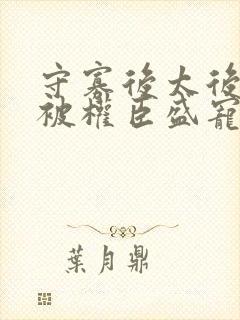 守寡後太後
被權臣盛寵
葉月鼎